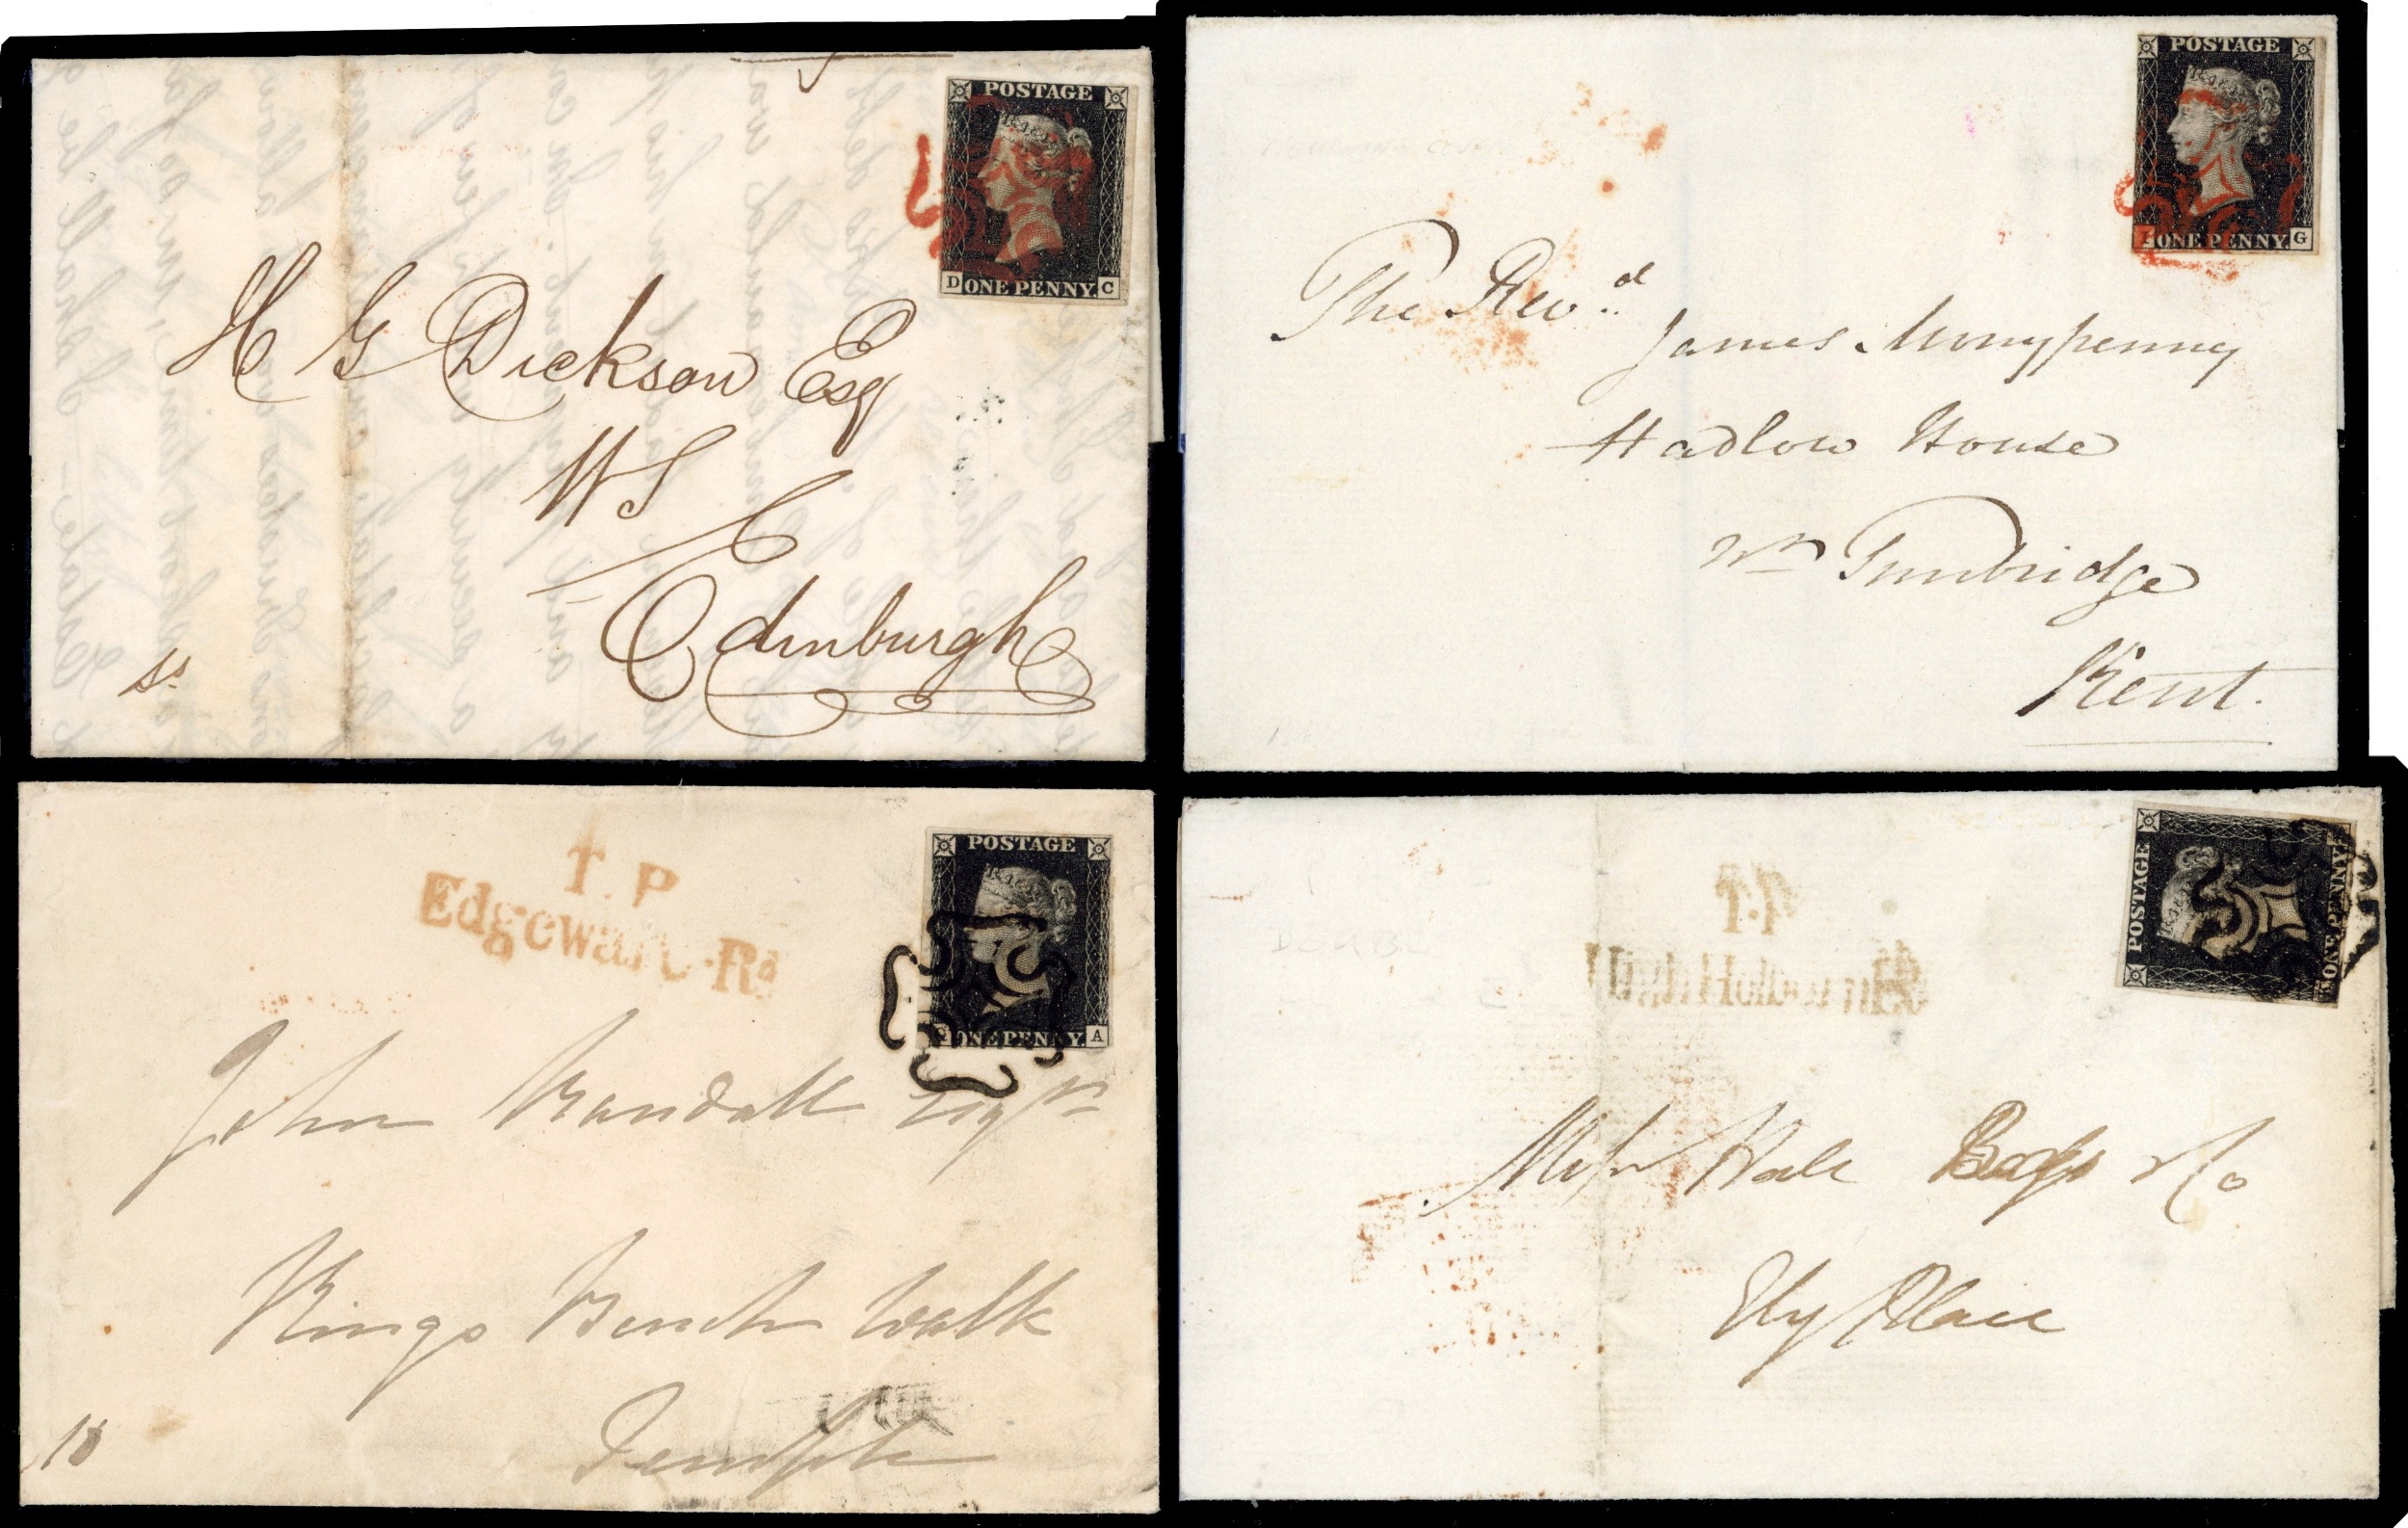 POSTAGE
D ONE PENNY. C
H G Dickson Esq
W S
Edinburgh
POSTAGE
ONE PENNY. G
The Revd.
James Monypenny
Hadlow House
nr Tunbridge
Kent.
T. P
Edgeware. Rd
POSTAGE
ONE PENNY. A
John Randall Esqr
Kings Bench Walk
Temple
10
POSTAGE
ONE PENNY
Hale & Co
Ely Place